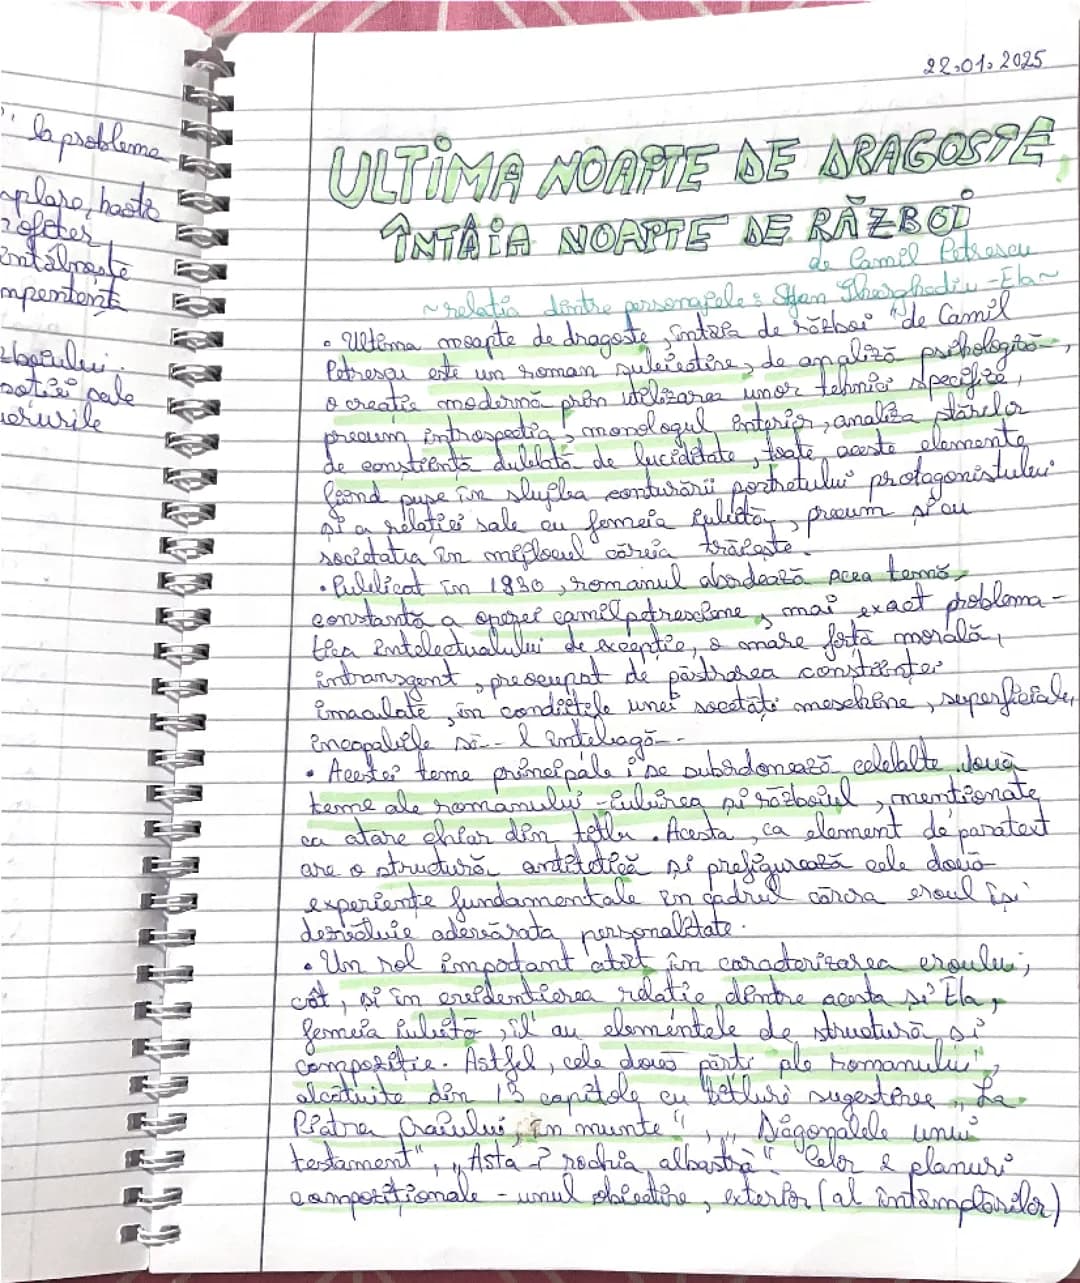 " la problema
aplare, hasta
rofcter,
întâlneste
mpentent
zboiului.
sotiei sale
urile
22.01.2025
ULTIMA NOAPTE DE DRAGOSTE,
ÎNTÂIA NOAPTE DE RĂZBOI
de Camil Petrescu
~ relatia dintre personajele: Stfan Gheorghediu - Ela ~
• "Ultima noapte de dragoste, întâia de război" de Camil
Petrescu este un roman subiectiv, de analiză psihologică,
o creatie modernă prin utilizarea unor tehnici specifice,
precum introspectia, monologul interior, analiza stărilor
de constiintă dublată de luciditate, toate aceste elemente
fiind puse în slujba conturării portretului protagonistului
si a relatiei sale cu femeia iubită, precum si cu
societatea în mijlocul căreia trăieste.
• Publicat în 1930, romanul abordează acea temă
constantă a operei camilpetresciene, mai exact problema-
tica intelectualului de exceptie, o mare fortă morală,
intransigent, preocupat de păstrarea constiintei
imaculate, în conditiile unei societăti meschine, superficiale,
incapabile să-l înteleagă.
• Acestei teme principale i se subordonează celelalte două
teme ale romanului - iubirea si războiul, mentionate
ca atare chiar din titlu. Acesta, ca element de paratext
are o structură antitetică si prefigurează cele două
experiente fundamentale în cadrul cărora eroul îsi
dezvăluie adevărata personalitate.
• Un rol important atât în caracterizarea eroului,
cât, si în evidentierea relatie dintre acesta si Ela,
femeia iubită, îl au elementele de structură si
compozitie. Astfel, cele două părti ale romanului,
alcătuite din 13 capitole cu titluri sugestive „La
Piatra Craiului, în munte", „Diagonalele unui
testament", „Asta-i rochia albastră" Celor 2 planuri
compozitionale - unul obiectiv, exterior (al întâmplărilor)